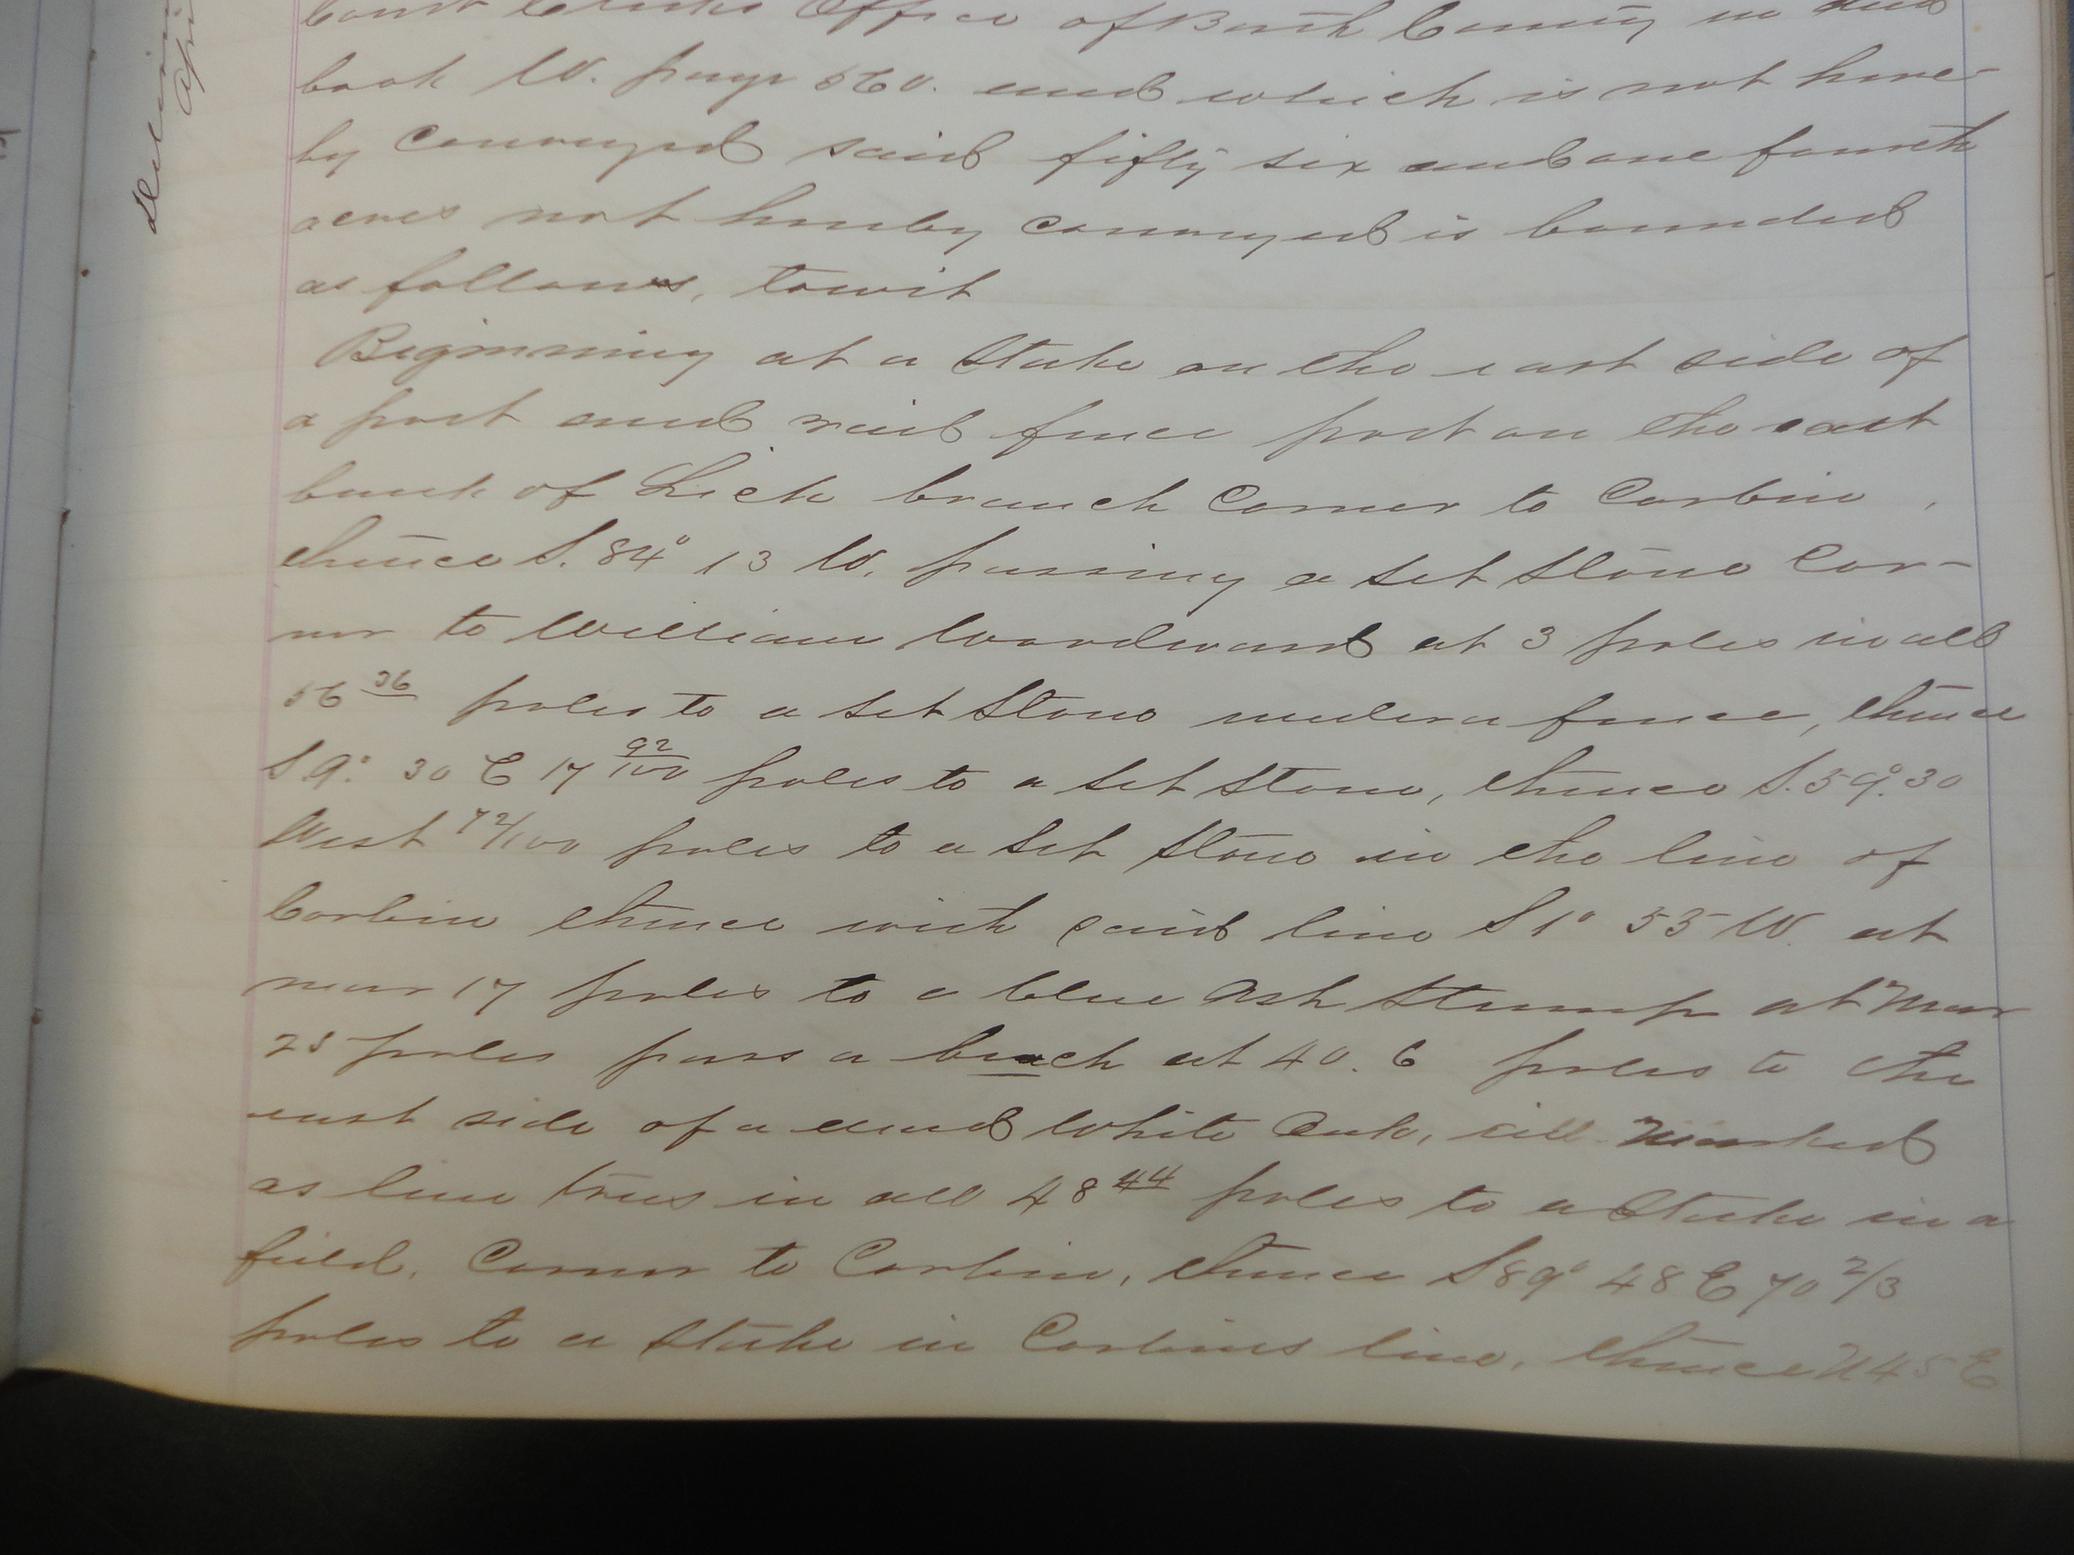 Court Clerks Office of Bath County in deed
book W. page 560. and which is not here-
by conveyed said fifty six and one fourth
acres not hereby conveyed is bounded
as follows, towit
Beginning at a Stake on the east side of
a post and rail fence post on the east
bank of Lick branch Corner to Corbin,
thence S. 84° 13 W. passing a set Stone Cor-
ner to William Woodward at 3 poles in all
56 36 poles to a set Stone under a fence, thence
S 9° 30 E 17 92/100 poles to a set Stone, thence S. 59° 30
West 72/100 poles to a set Stone in the line of
Corbin thence with said line S 1° 55 W. at
near 17 poles to a blue Ash Stump at near
25 poles pass a beach at 40. 6 poles to the
east side of a dead White Oak, all marked
as line trees in all 48 44 poles to a Stake in a
field, Corner to Corbin, thence S 89° 48 E 70 2/3
poles to a Stake in Corbins line, thence N 45 E